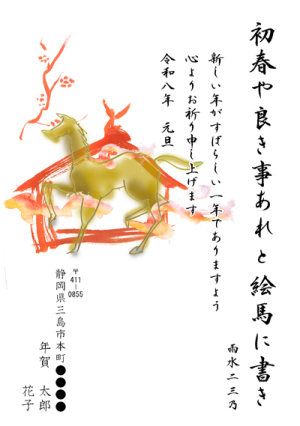 初春や良き事あれと絵馬に書き
雨水二三乃
新しい年がすばらしい一年でありますよう
心よりお祈り申し上げます
令和八年 元旦
〒411-0855
静岡県三島市本町●●●●
年賀 太郎
花子